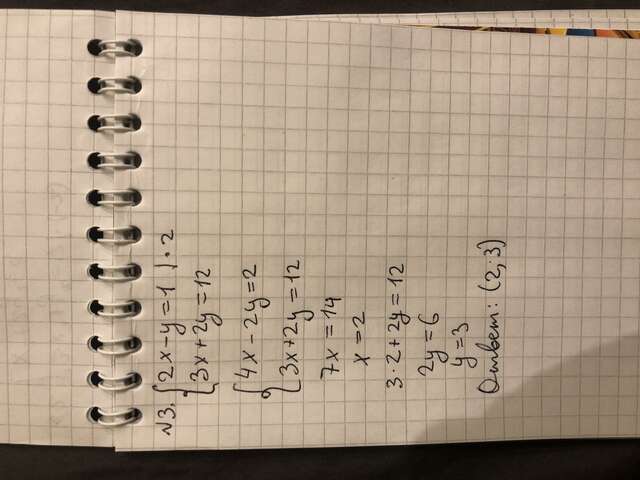 №3. { 2x-y=1 | • 2
{ 3x+2y=12
{ 4x-2y=2
{ 3x+2y=12
7x=14
x=2
3·2+2y=12
2y=6
y=3
Ответ: (2; 3)